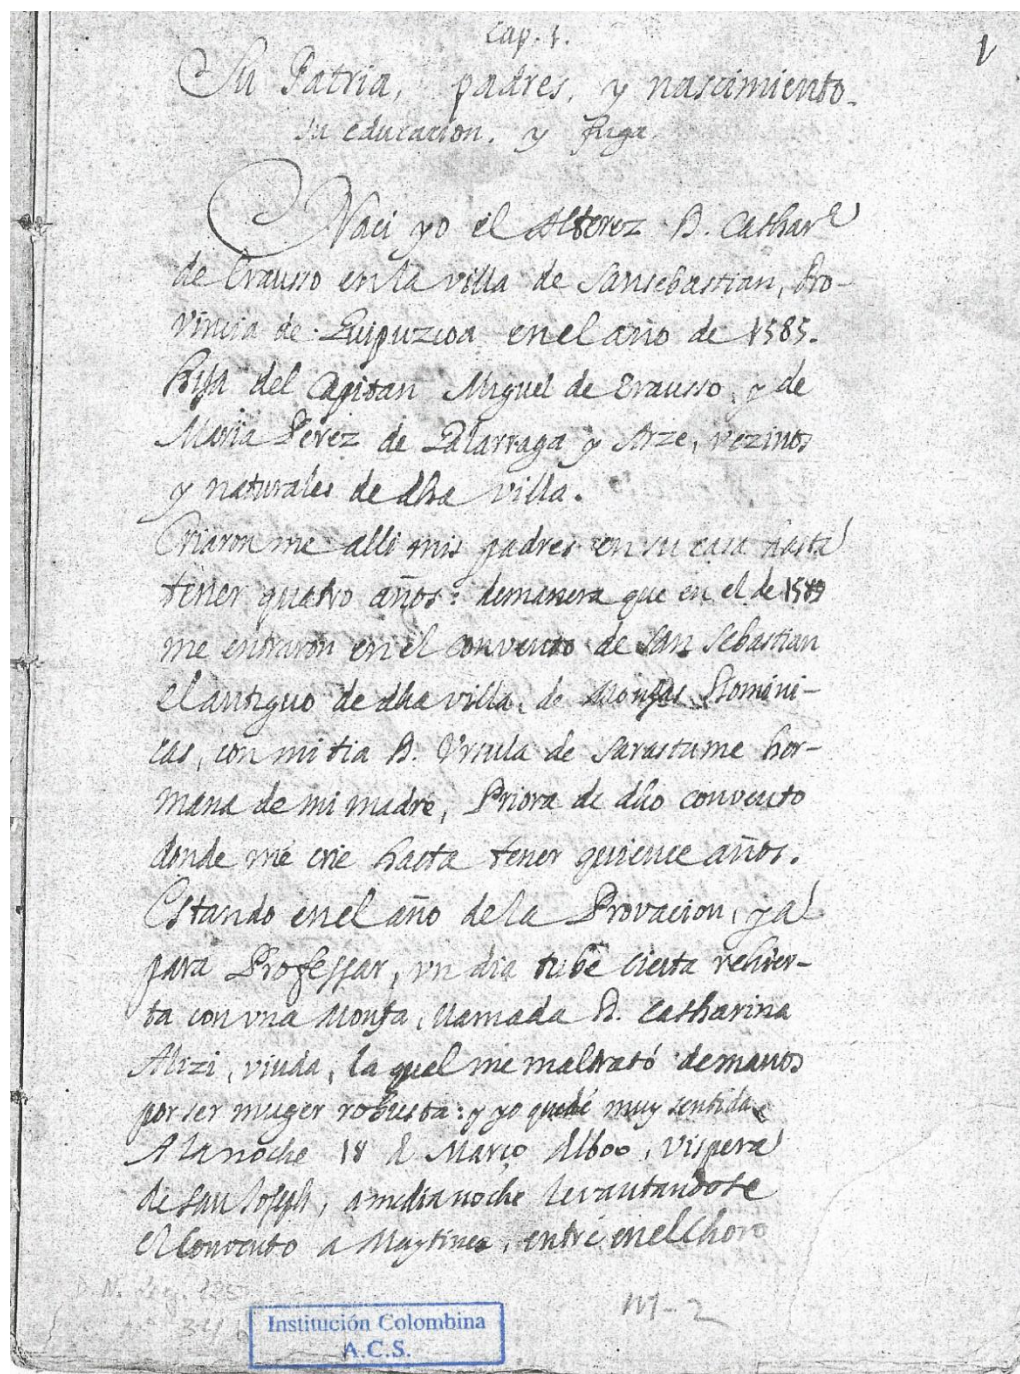 Cap. 1.
1
Su Patria, padres, y nascimiento.
su educacion. y fuga.
Naci yo el Alferez D. Cathar.ᵃ
de Erausso en la villa de Sansebastian, Pro-
vincia de Guipuzcoa en el año de 1585.
hija del Capitan Miguel de Erausso, y de
Maria Perez de Galarraga y Arze, vezinos
y naturales de dha villa.
Criaron me alli mis padres en su casa hasta
tener quatro años: demanera que en el de 1589
me entraron en el convento de San Sebastian
el antiguo de dha villa, de Monjas Domini-
cas, con mi tia D. Vrsula de Sarastume her-
mana de mi madre, Priora de dho convento
donde me crie hasta tener quience años.
Estando en el año de la Provacion, ya
para Professar, vn dia tube cierta rehier-
ta con vna Monja, llamada D. Catharina
Alizi, viuda, la qual me maltrató demanos
por ser muger robusta: y yo quedé muy sentida
A la noche 18 d Março d1600, vispera
de San Joseph, amedia noche levantandose
el Convento a Maytines, entré en el Choro
Institución Colombina
A.C.S.